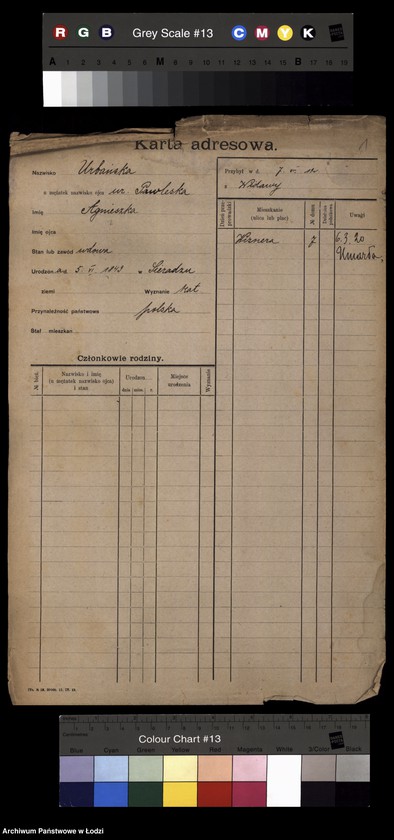 R G B Grey Scale #13 C M Y K
A 1 2 3 4 5 6 M 8 9 10 11 12 13 14 15 B 17 18 19
Karta adresowa.
Nazwisko Urbańska
u mężatek nazwisko ojca ur. Pawleska
Imię Agnieszka
Imię ojca
Stan lub zawód wdowa
Urodzon d. 5. VI 1843 w Sieradzu
ziemi Wyznanie kat
Przynależność państwowa polska
Stał mieszkan.
Przybył w d. 7
z Widawy
Mieszkanie
(ulica lub plac)
№ domu
Uwagi
7
6.3.20
Umarła
Członkowie rodziny.
№ bież.
Nazwisko i imię
(u mężatek nazwisko ojca)
i stan
Urodzon
dnia mies. r.
Miejsce
urodzenia
Wyznanie
Colour Chart #13
Blue Cyan Green Yellow Red Magenta White 3/Color Black
Archiwum Państwowe w Łodzi